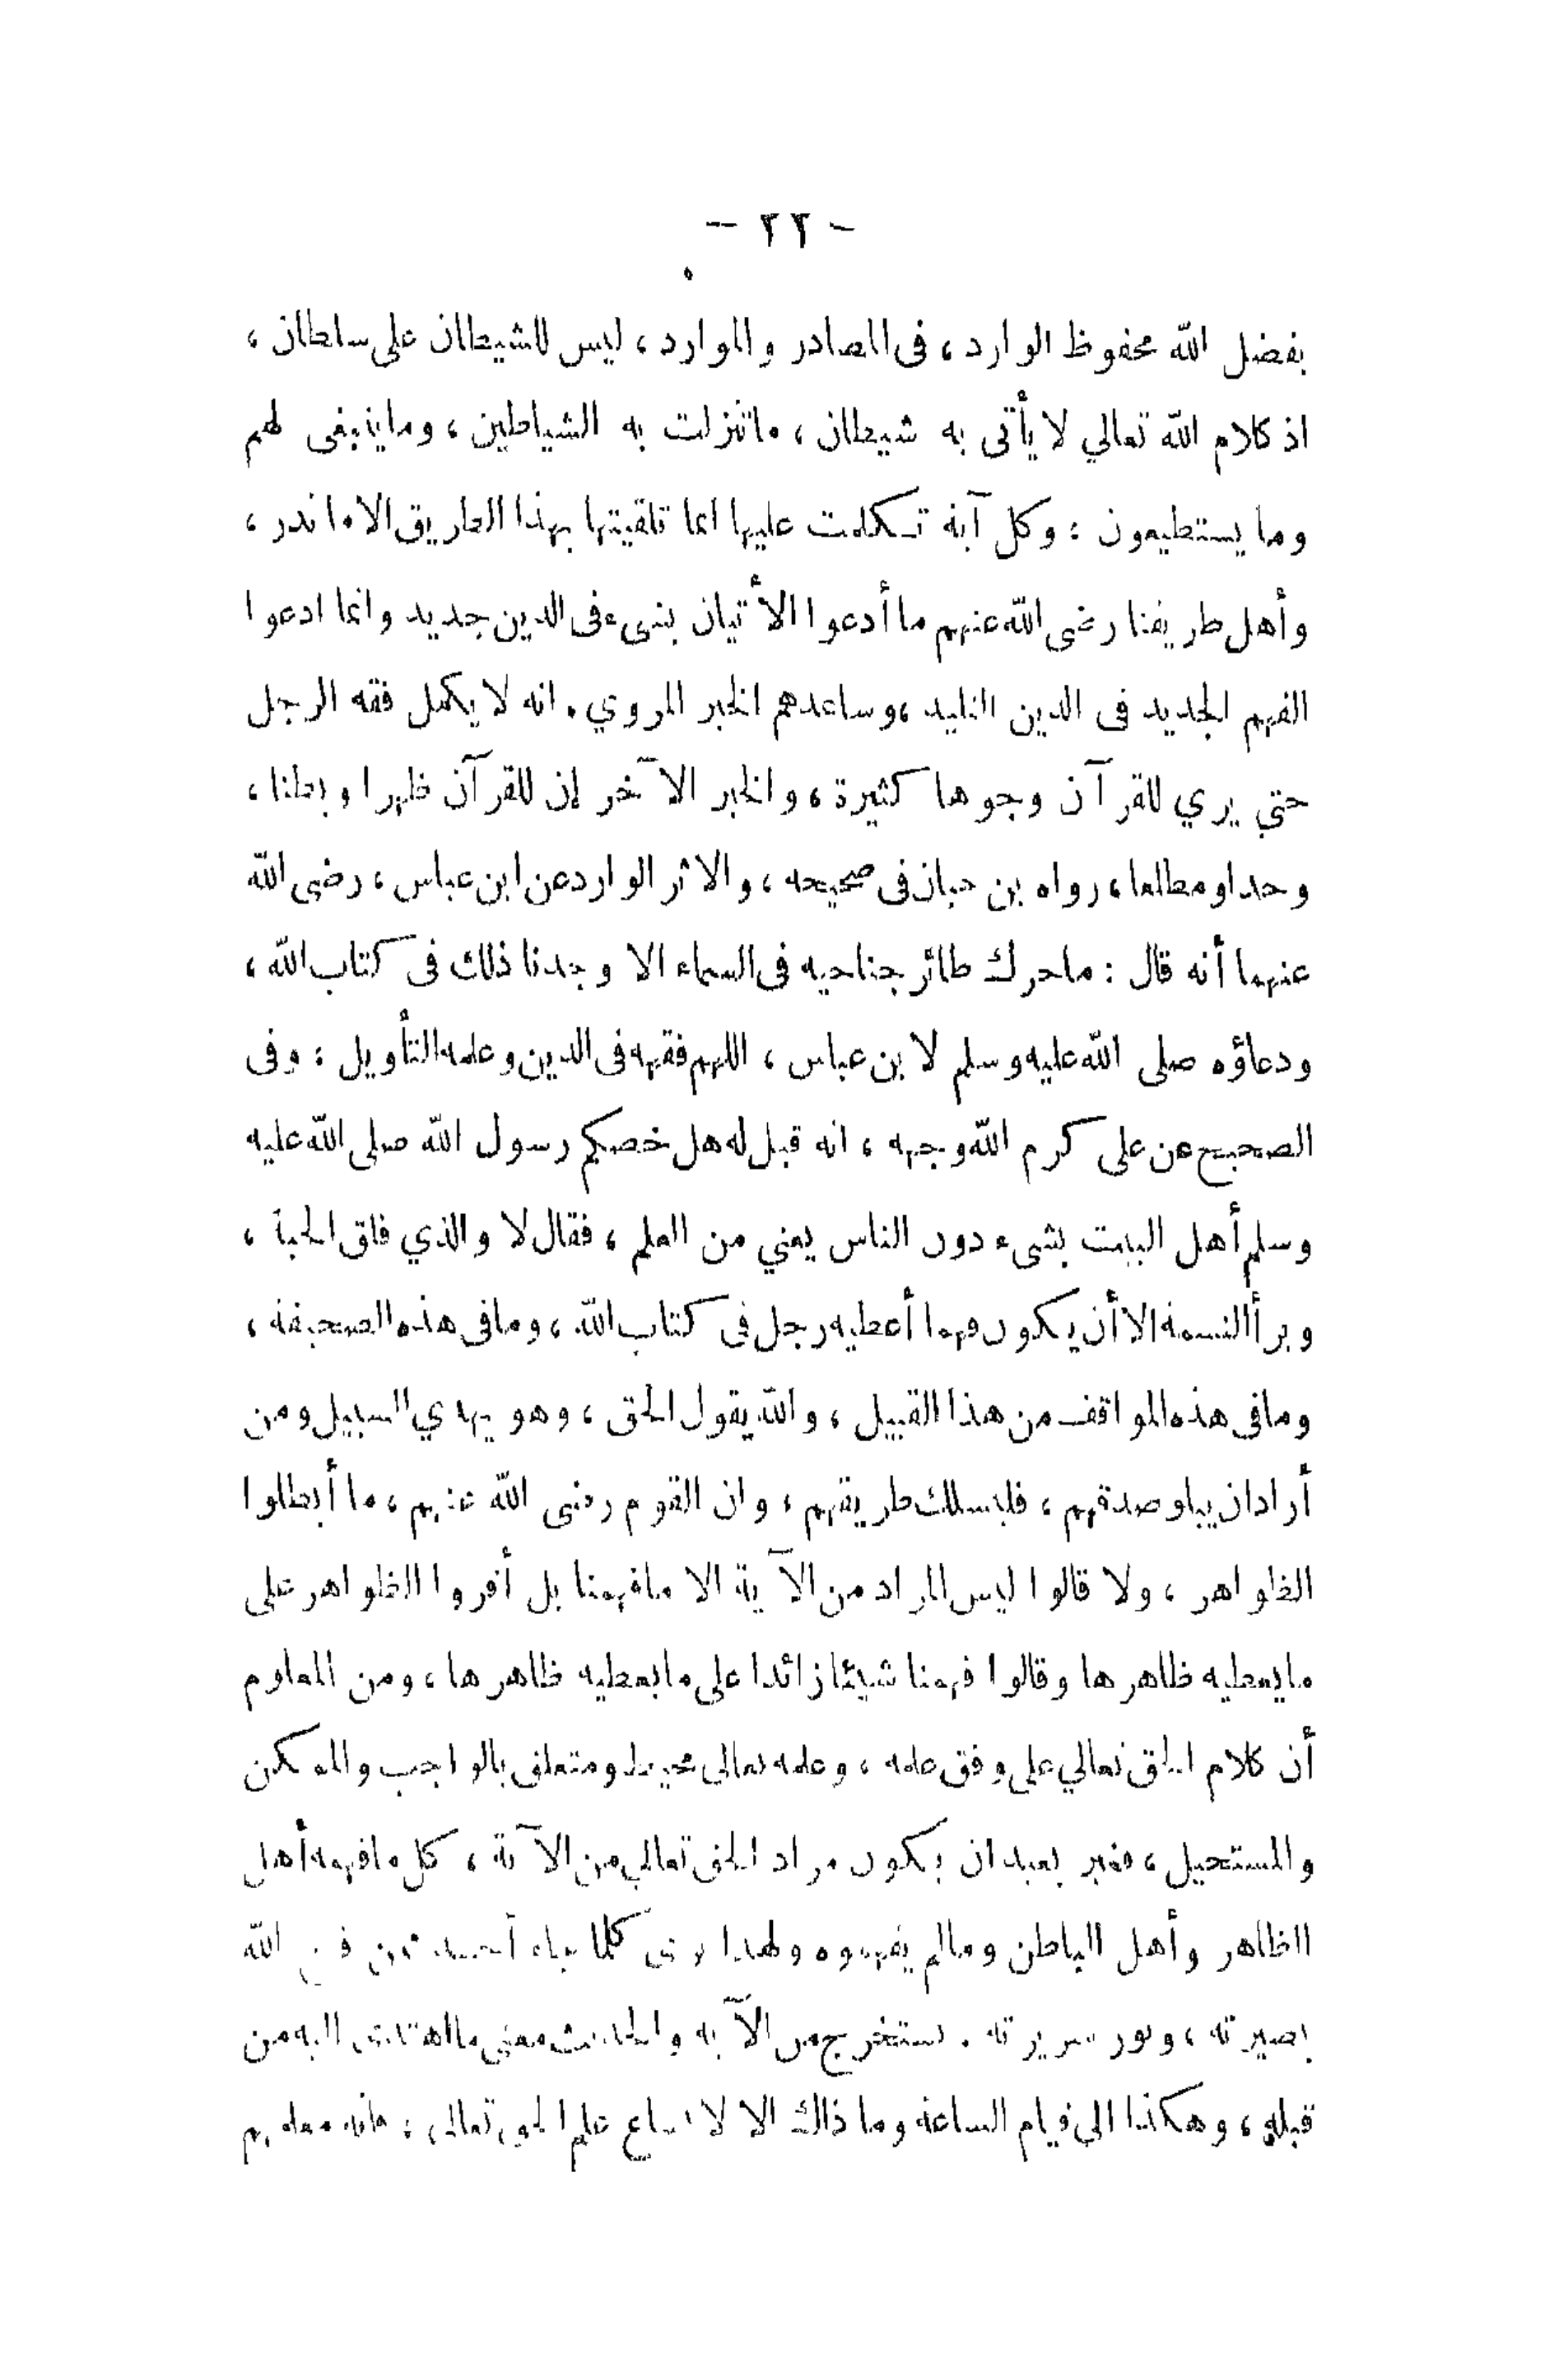 - ٢٢ -
بفضل الله محفوظ الوارد ، فى المصادر والموارد ، ليس للشيطان على سلطان ،
اذ كلام الله تعالي لا يأتى به شيطان ، ماتنزلت به الشياطين ، وماينبغى لهم
وما يستطيعون : وكل آية تـكلمت عليها انما تلقيتها بهذا الطريق الا ماندر ،
وأهل طريقنا رضى الله عنهم ما أدعوا الأتيان بشىء فى الدين جديد وانما ادعوا
الفهم الجديد فى الدين التليد ، وساعدهم الخبر المروي . انه لا يكمل فقه الرجل
حتي يري للقرآن وجوها كثيرة ، والخبر الآخر إن للقرآن ظهرا وبطنا ،
وحدا ومطلعا ، رواه بن حبان فى صحيحه ، والاثر الوارد عن ابن عباس ، رضى الله
عنهما أنه قال : ماحرك طائر جناحيه فى السماء الا وجدنا ذلك فى كتاب الله ،
ودعاؤه صلى الله عليه وسلم لابن عباس ، اللهم فقهه فى الدين وعلمه التأويل : وفى
الصحيح عن على كرم الله وجهه ، انه قيل له هل خصكم رسول الله صلى الله عليه
وسلم أهل البيت بشىء دون الناس يعني من العلم ، فقال لا والذي فلق الحبة ،
وبرأ النسمة الا أن يكون فهما أعطيه رجل فى كتاب الله ، ومافى هذه الصحيفة ،
ومافى هذه المواقف من هذا القبيل ، والله يقول الحق ، وهو يهدي السبيل ومن
أراد ان يبلو صدقهم ، فليسلك طريقهم ، وان القوم رضى الله عنهم ، ما أبطلوا
الظواهر ، ولا قالوا ليس المراد من الآية الا مافهمنا بل أقروا الظواهر على
مايعطيه ظاهرها وقالوا فهمنا شيئا زائدا على مايعطيه ظاهرها ، ومن المعلوم
أن كلام الحق تعالي على وفق علمه ، وعلمه تعالى محيط ومتعلق بالواجب والممكن
والمستحيل ، فغير بعيد ان يكون مراد الحق تعالى من الآية ، كل مافهمه أهل
الظاهر وأهل الباطن ومالم يفهموه ولهذا ترى كلما جاء أحد ممن الله
بصيرته ، ونور سريرته . يستخرج من الآية والحديث معنى مااهتدى اليه من
قبله ، وهكذا الى قيام الساعة وما ذاك الا لاتساع علم الحق تعالى ، فانه معلمهم